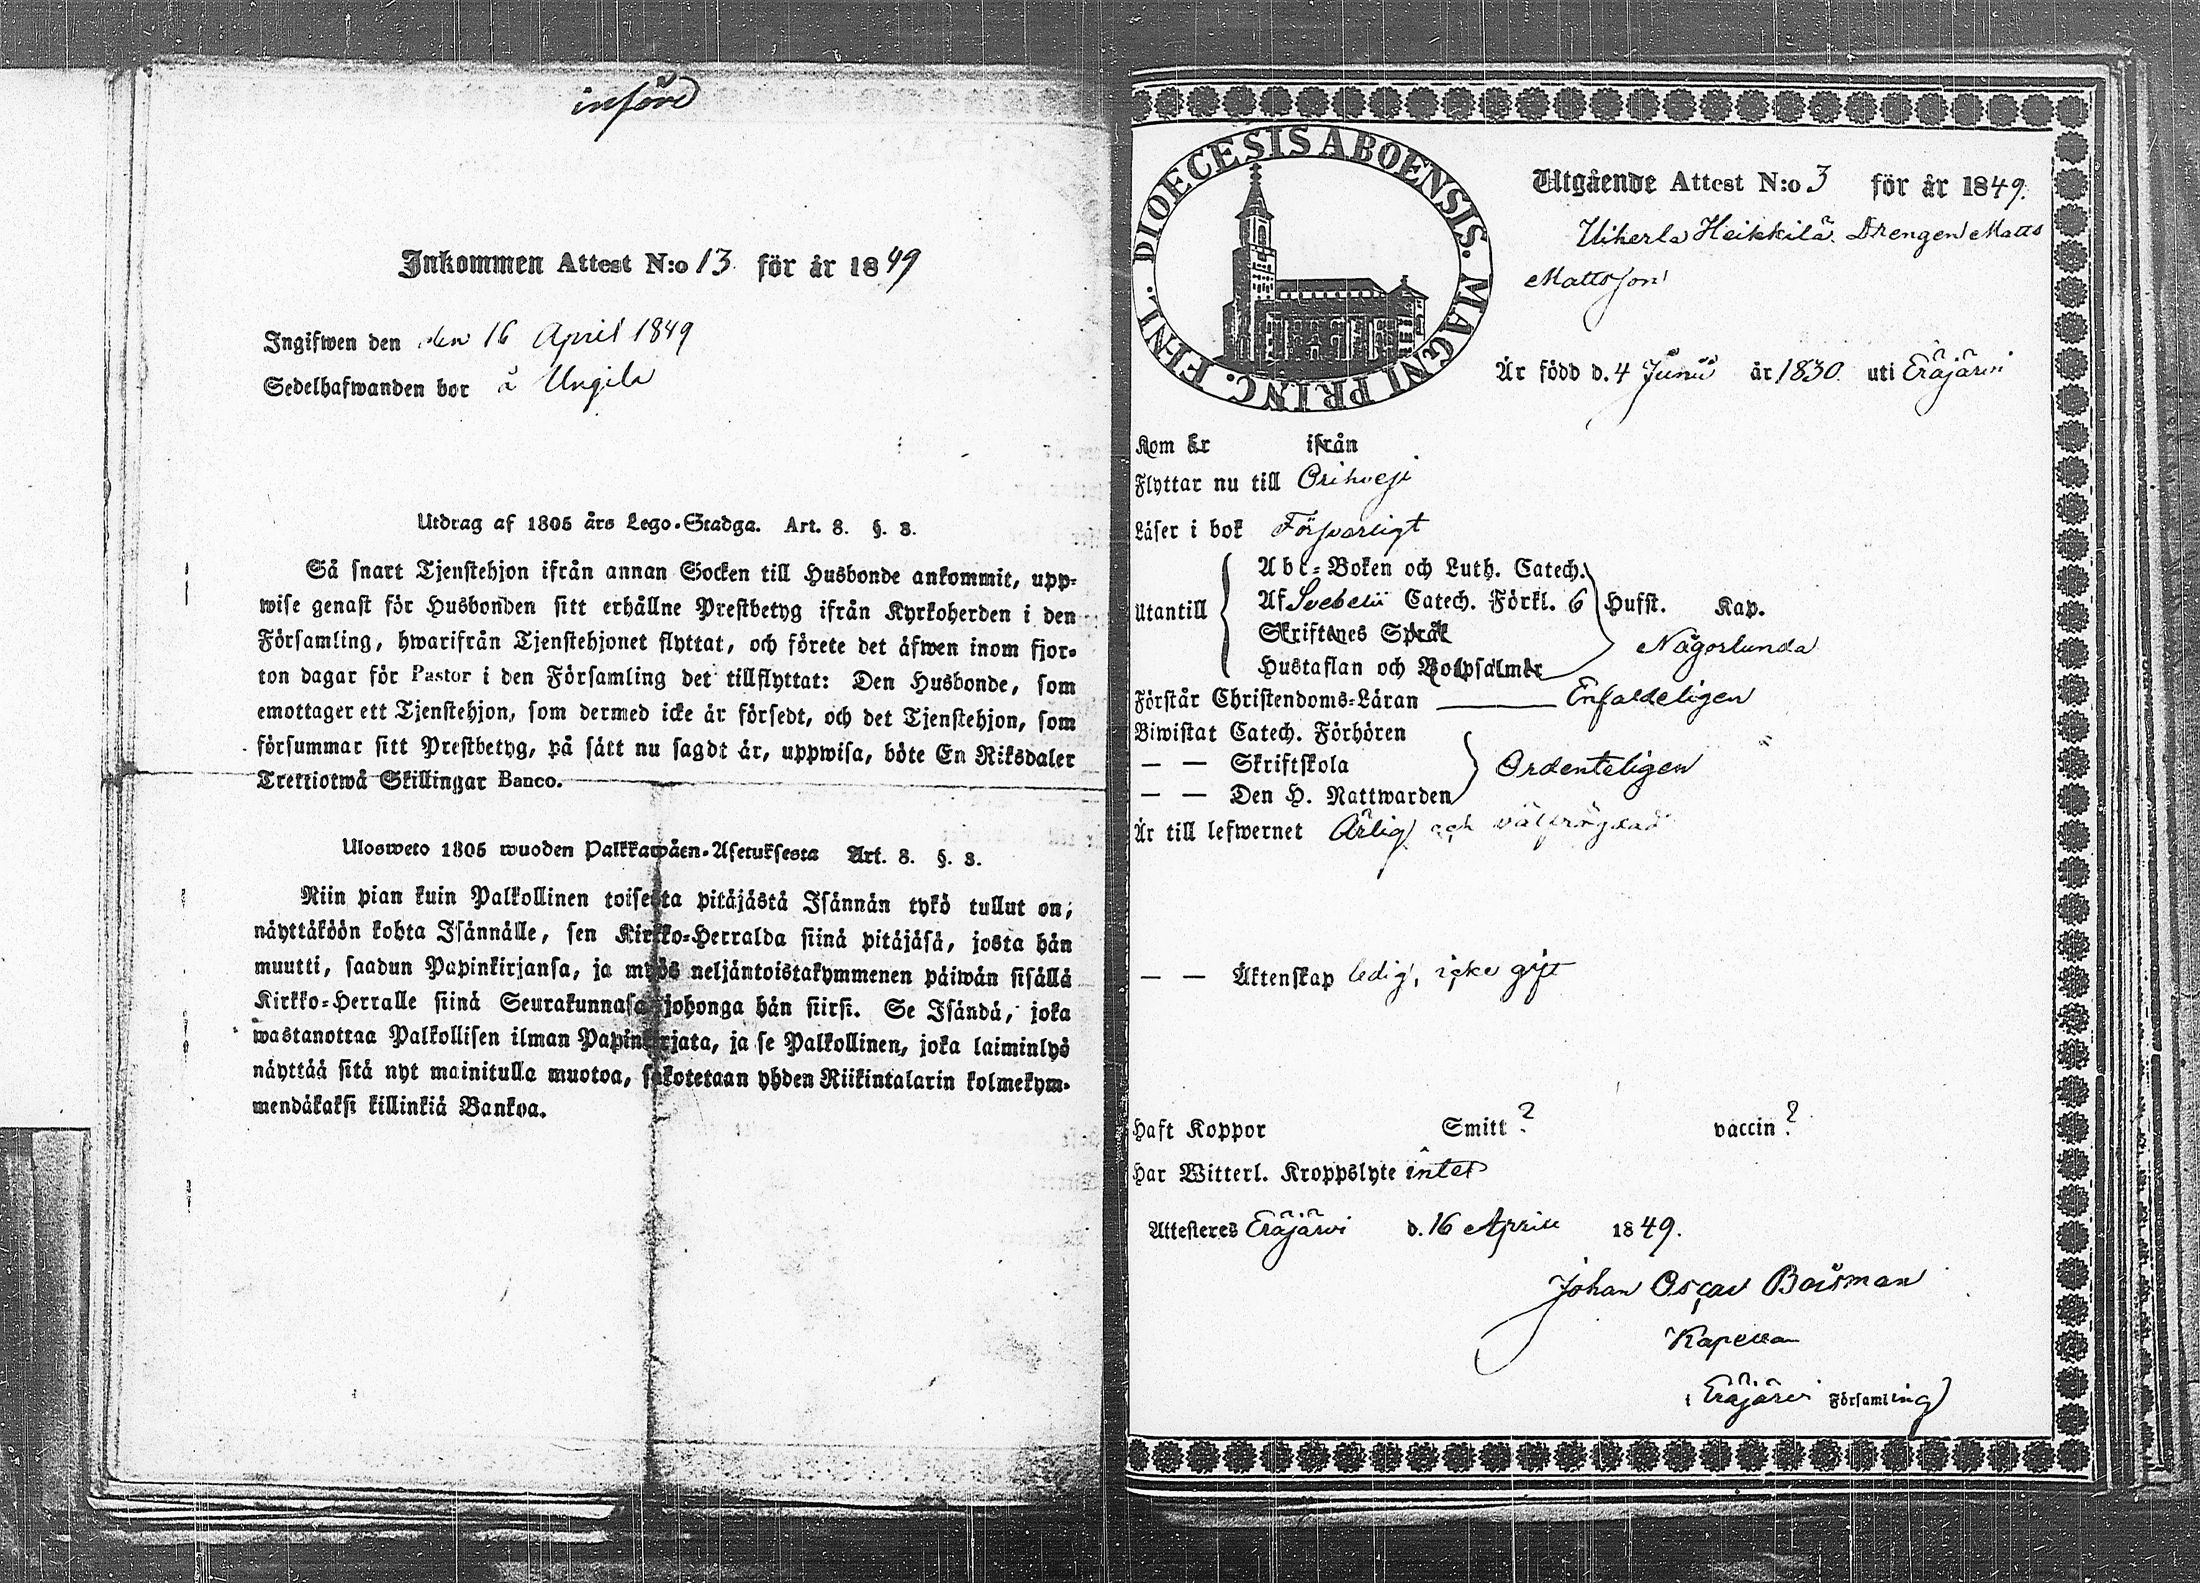 införd
Inkommen Attest N:o 13 för år 1849
Ingifwen den den 16 April 1849
Sedelhafwanden bor å Ungila
Utdrag af 1805 års Lego-Stadga. Art. 8. §. 3.
Så snart Tjenstehjon ifrån annan Socken till Husbonde ankommit, upp-
wise genast för Husbonden sitt erhållne Prestbetyg ifrån Kyrkoherden i den
Församling, hwarifrån Tjenstehjonet flyttat, och förete det äfwen inom fjor-
ton dagar för Pastor i den Församling det tillflyttat: Den Husbonde, som
emottager ett Tjenstehjon, som dermed icke är försedt, och det Tjenstehjon, som
försummar sitt Prestbetyg, på sätt nu sagdt är, uppwisa, böte En Riksdaler
Trettiotwå Skillingar Banco.
Ulosweto 1805 wuoden Palkkawäen-Asetuksesta Art. 8. §. 3.
Niin pian kuin Palkollinen toisesta pitäjästä Isännän tykö tullut on,
näyttäköön kohta Isännälle, sen Kirkko-Herralda siinä pitäjäsä, josta hän
muutti, saadun Papinkirjansa, ja myös neljäntoistakymmenen päiwän sisällä
Kirkko-Herralle siinä Seurakunnasa johonga hän siirsi. Se Isändä, joka
wastanottaa Palkollisen ilman Papinkirjata, ja se Palkollinen, joka laiminlyö
näyttää sitä nyt mainitulla muotoa, sakotetaan yhden Riikintalarin kolmekym-
mendäkaksi killinkiä Bankoa.
DIOECESIS ABOENSIS. MAGNI PRINC. FINL.
Utgående Attest N:o 3 för år 1849.
Uiherla Heikkilä Drengen Matts
Mattsson
Är född d. 4 Junii år 1830. uti Eräjärvi
Kom år ifrån
Flyttar nu till Orihvesi
Läser i bok Försvarligt
Utantill
Abc-Boken och Luth. Catech.
Af Svebelii Catech. Förkl. 6 Hufst. Kap.
Skriftenes Språk
Hustaflan och Botpsalmer
Någorlunda
Förstår Christendoms-Läran Enfaldeligen
Biwistat Catech. Förhören
— — Skriftskola Ordenteligen
— — Den H. Nattwarden
Är till lefwernet Ärlig och välfrägdad
— — Äktenskap ledig, icke gift
Haft Koppor Smitt ? vaccin ?
Har Witterl. Kroppslyte intet
Attesteres Eräjärvi d. 16 Aprill 1849.
Johan Oscar Boisman
Kapellan
i Eräjärvi Församling